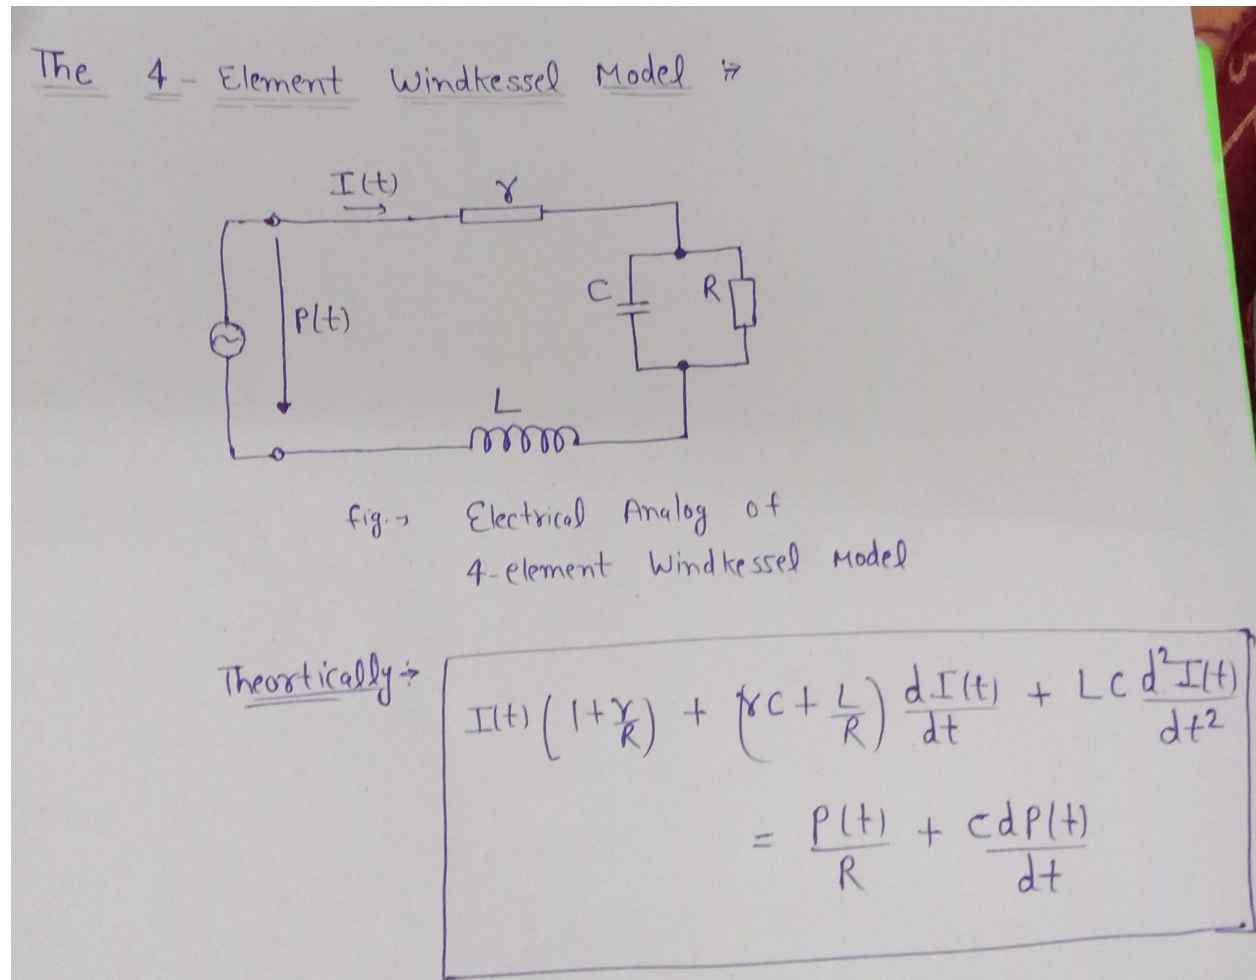 The 4-Element Windkessel Model :→
I(t) r
C R
P(t)
L
fig.→ Electrical Analog of
4-element Windkessel Model
Theortically:→
I(t) (1 + r/R) + (rC + L/R) dI(t)/dt + LC d²I(t)/dt²
= P(t)/R + C dP(t)/dt